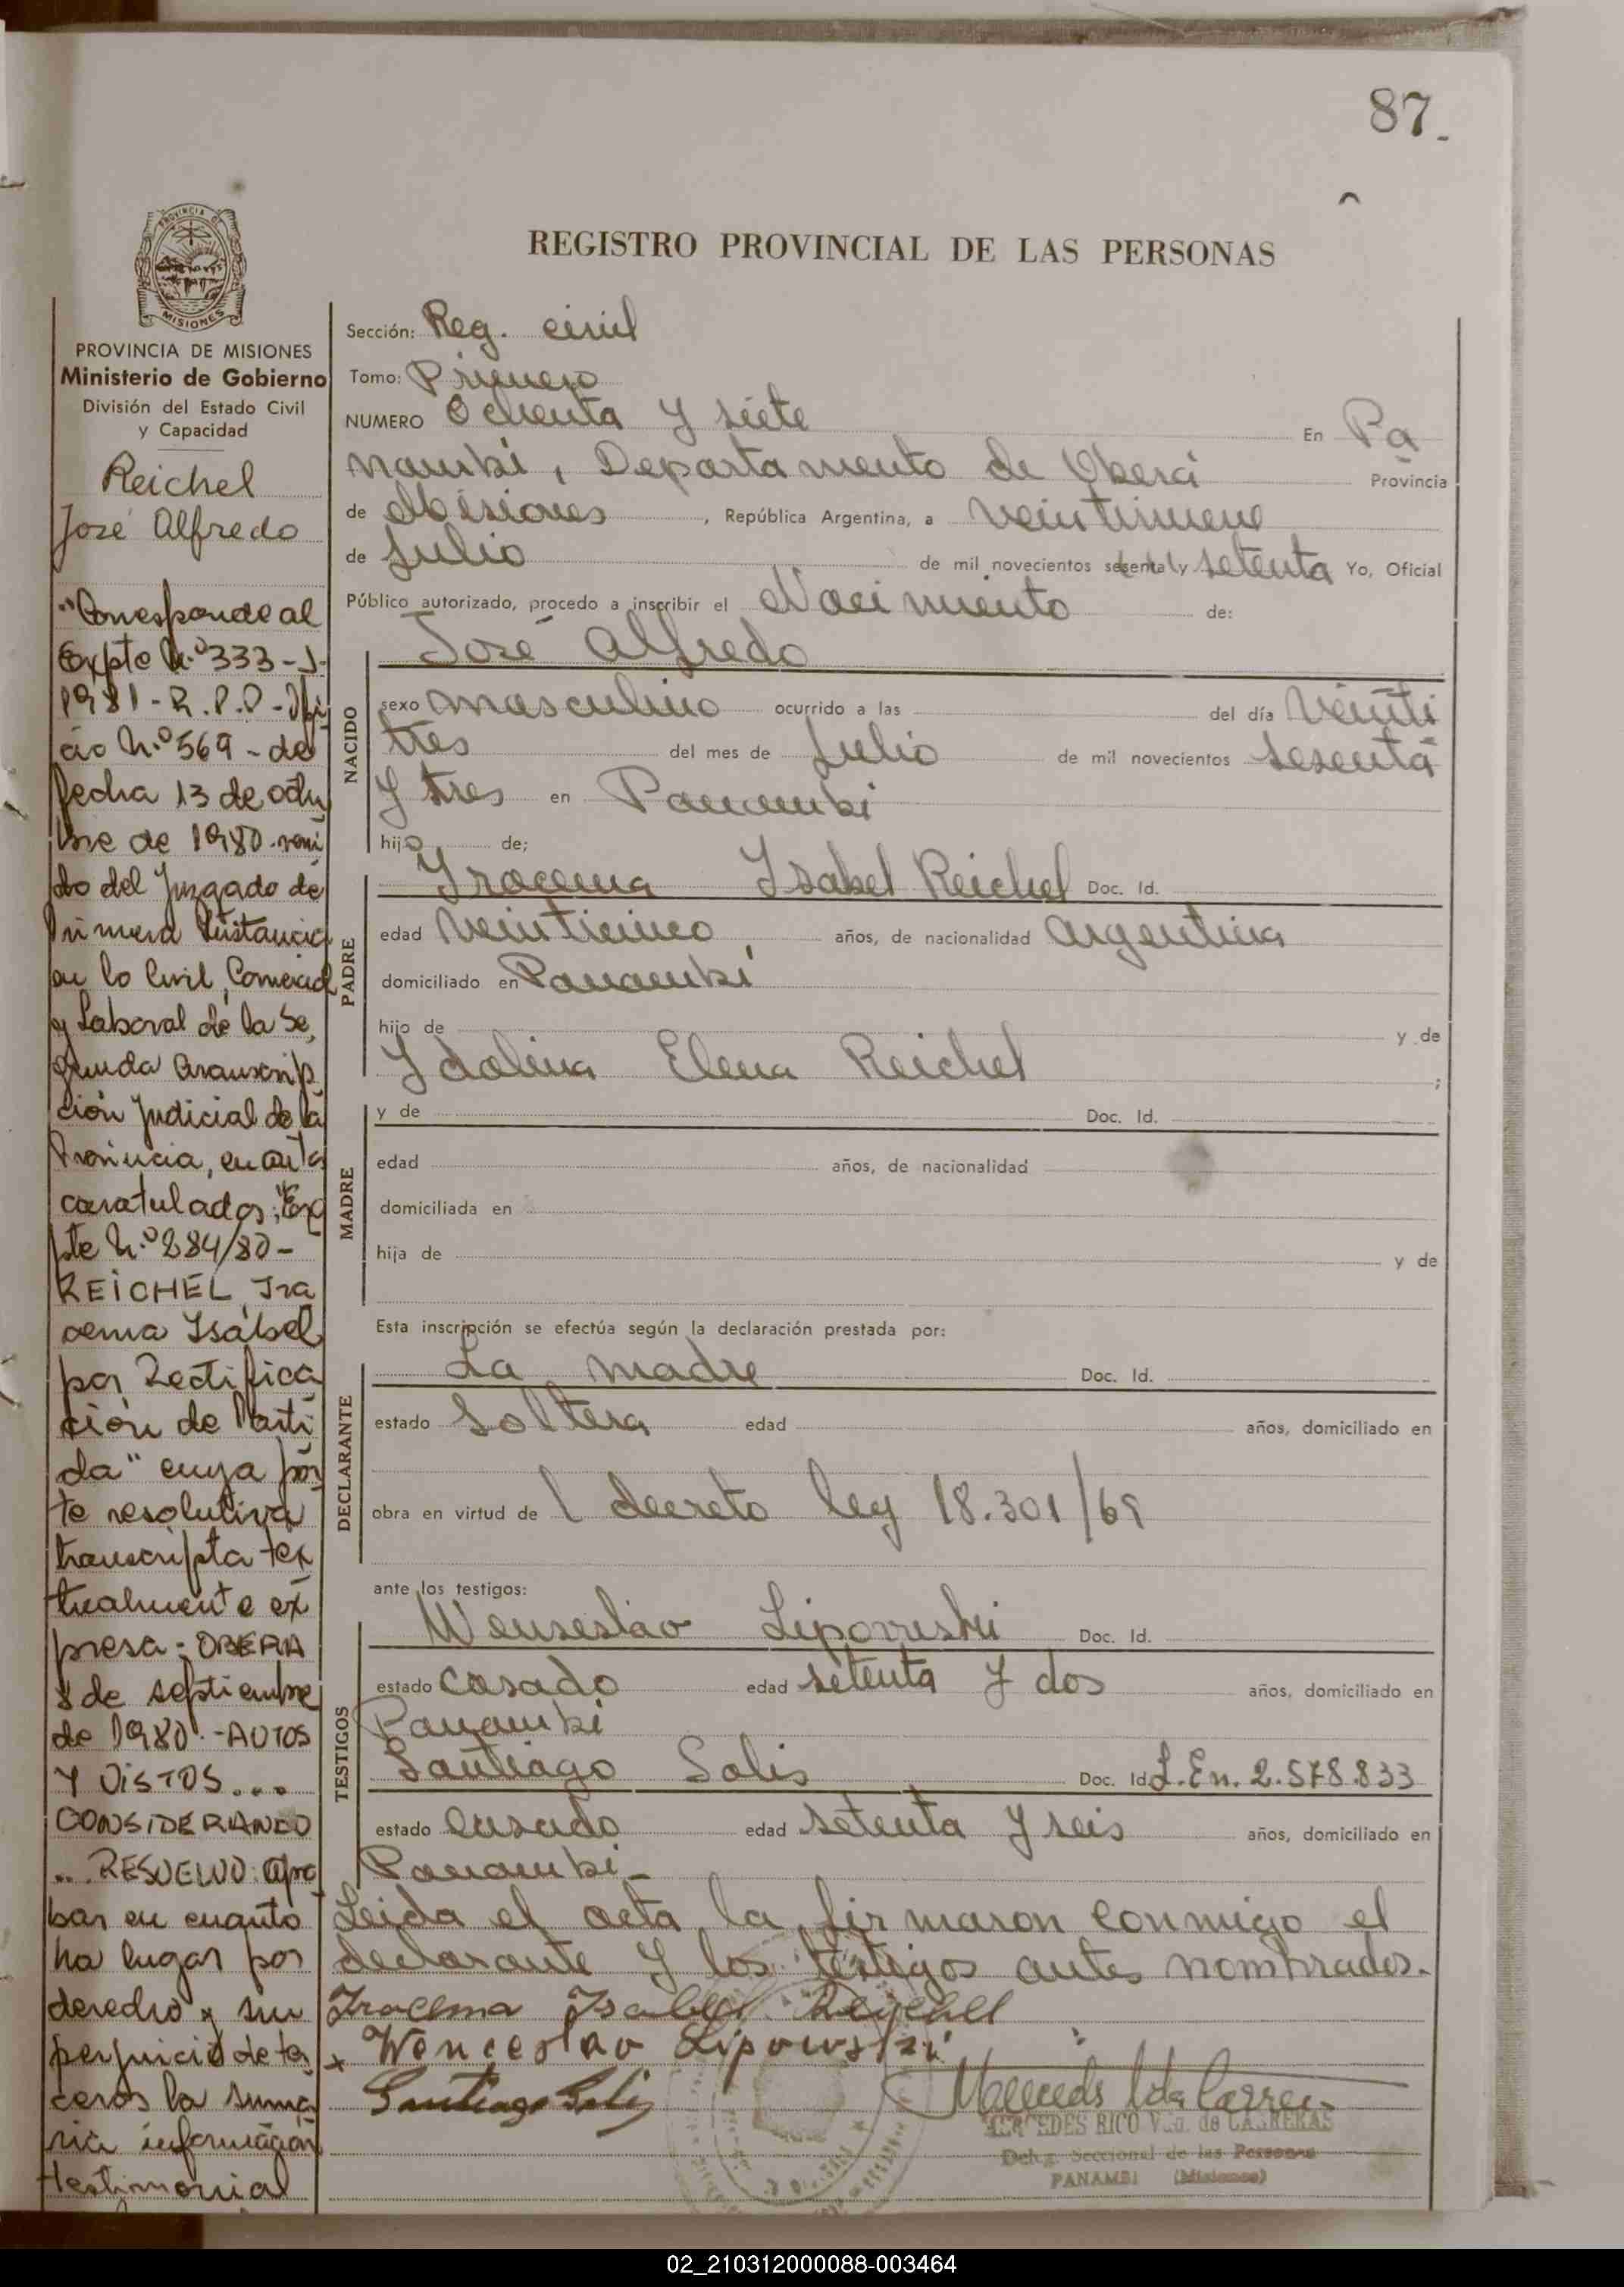 87.
REGISTRO PROVINCIAL DE LAS PERSONAS
PROVINCIA DE
MISIONES
PROVINCIA DE MISIONES
Ministerio de Gobierno
División del Estado Civil
y Capacidad
Reichel
José Alfredo
"Corresponde al
Expte N.º 333-J-
1981-R.P.P-Ofi
cio N.º 569-de
fecha 13 de octu
bre de 1980-veni
do del Juzgado de
Primera Instancia
en lo Civil, Comercial
y Laboral de la Se
gunda Circunscrip
ción Judicial de la
Provincia, en autos
caratulados; "Exp
te N.º 284/80-
REICHEL, Ira
cema Isabel
por Rectifica
ción de Parti
da" cuya par
te resolutiva
transcripta tex
tualmente ex
presa: OBERA
8 de septiembre
de 1980.-AUTOS
Y VISTOS....
CONSIDERANDO
....RESUELVO: Apro
bar en cuanto
ha lugar por
derecho y sin
perjuicio de ter
ceros la suma
ria información
testimonial
Sección: Reg. civil
Tomo: Primero
NUMERO Ochenta y siete En Pa
nambí, Departamento de Oberá Provincia
de Misiones, República Argentina, a veintinueve
de Julio de mil novecientos sesenta y setenta Yo, Oficial
Público autorizado, procedo a inscribir el Nacimiento de:
José Alfredo
NACIDO
sexo masculino ocurrido a las del día veinti
tres del mes de Julio de mil novecientos sesenta
y tres en Panambí
hijo de;
PADRE
Yracema Ysabel Reichel Doc. Id.
edad veinticinco, años, de nacionalidad argentina
domiciliado en Panambí
hijo de y de
Ydolina Elena Reichel ;
MADRE
y de Doc. Id.
edad años, de nacionalidad
domiciliada en
hija de y de
Esta inscripción se efectúa según la declaración prestada por:
DECLARANTE
La madre Doc. Id.
estado Soltera edad años, domiciliado en
obra en virtud de l decreto ley 18.301/69
ante los testigos:
TESTIGOS
Wenseslao Lipowski Doc. Id.
estado Casado edad setenta y dos años, domiciliado en
Panambí
Santiago Solis Doc. Id. L.En. 2.578.833
estado casado edad setenta y seis años, domiciliado en
Panambí-
Leida el acta la firmaron conmigo el
declarante y los testigos antes nombrados.
Iracema Isabel Reichel
x Wenceslao Lipowski
Santiago Solis
MERCEDES RICO Vda. de CARRERAS
Deleg. Seccional de las Personas
PANAMBI (Misiones)
02_210312000088-003464